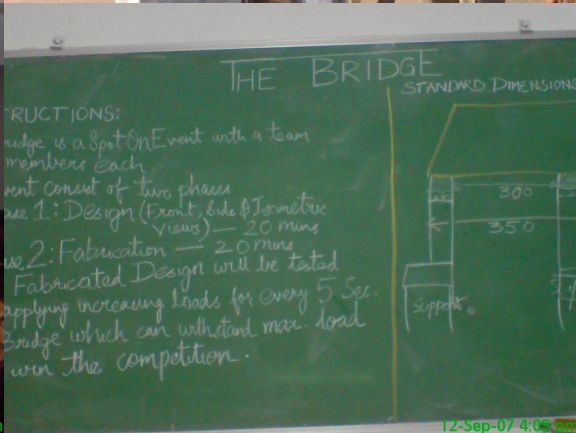 THE BRIDGE
RUCTIONS:
ridge is a Spot On Event with a team
members each
vent consist of two phases
ase 1: Design (Front, Side & Isometric
Views) — 20 mins
se 2: Fabrication — 20 mins
Fabricated Design will be tested
applying increasing loads for every 5 Sec.
Bridge which can withstand max. load
win the competition.
STANDARD DIMENSIONS
300
350
Support
12-Sep-07 4:09 pm